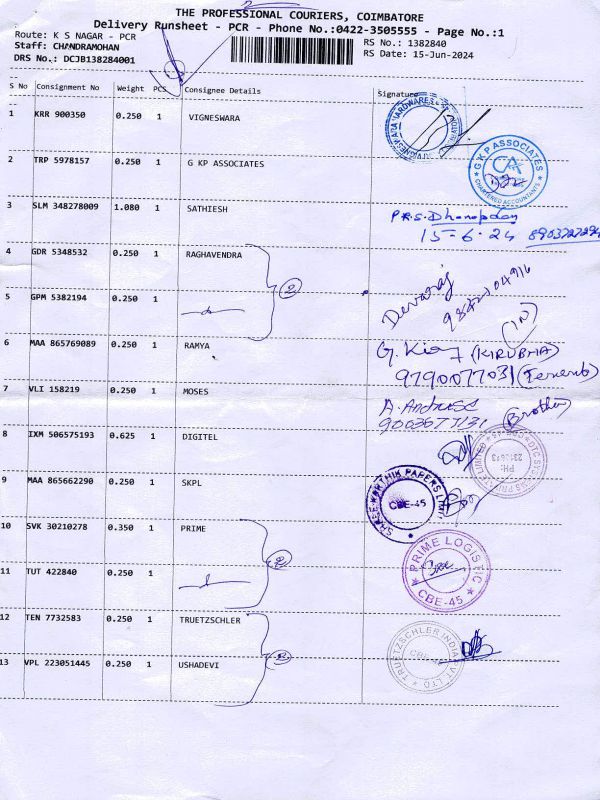 THE PROFESSIONAL COURIERS, COIMBATORE
Delivery Runsheet - PCR - Phone No.:0422-3505555 - Page No.:1
Route: K S NAGAR - PCR
RS No.: 1382840
Staff: CHANDRAMOHAN
RS Date: 15-Jun-2024
DRS No.: DCJB138284001
S No Consignment No Weight PCS Consignee Details Signature
1 KRR 900350 0.250 1 VIGNESWARA
2 TRP 5978157 0.250 1 G KP ASSOCIATES
G K P ASSOCIATES
CA
CHARTERED ACCOUNTANTS
3 SLM 348278009 1.080 1 SATHIESH
15-6-24
4 GDR 5348532 0.250 1 RAGHAVENDRA
2
Devaraj
5 GPM 5382194 0.250 1
6 MAA 865769089 0.250 1 RAMYA
G. (KIRUBHA)
9790077031
7 VLI 158219 0.250 1 MOSES
A. (Brother)
8 IXM 506575193 0.625 1 DIGITEL
9 MAA 865662290 0.250 1 SKPL
SHREE KARTHIK PAPERS
CBE-45
10 SVK 30210278 0.350 1 PRIME
PRIME LOGISTIC
CBE-45
11 TUT 422840 0.250 1
12 TEN 7732583 0.250 1 TRUETZSCHLER
TRUETZSCHLER INDIA PVT. LTD
13 VPL 223051445 0.250 1 USHADEVI